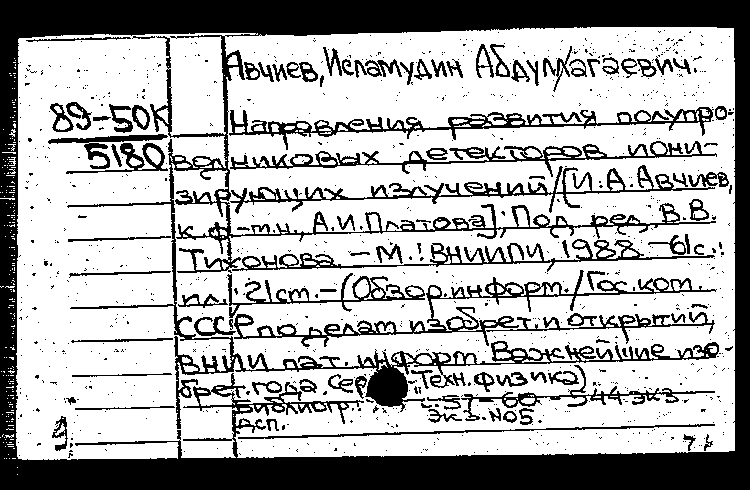 Авчиев, Исламудин Абдулхагаевич.
89-50К
5180
Направления развития полупро-
водниковых детекторов иони-
зирующих излучений/[И.А.Авчиев,
к.ф.-м.н., А.И.Платова]; Под ред. В.В.
Тихонова. – М.: ВНИИПИ, 1988 – 61с.:
ил.; 21см. – (Обзор. информ. / Гос. ком.
СССР по делам изобрет. и открытий,
ВНИИ пат. информ. Важнейшие изо-
брет. года. Сер. "Техн. физика)
Библиогр.: с. 57-60 – 544 экз.
дсп. Экз. №05.